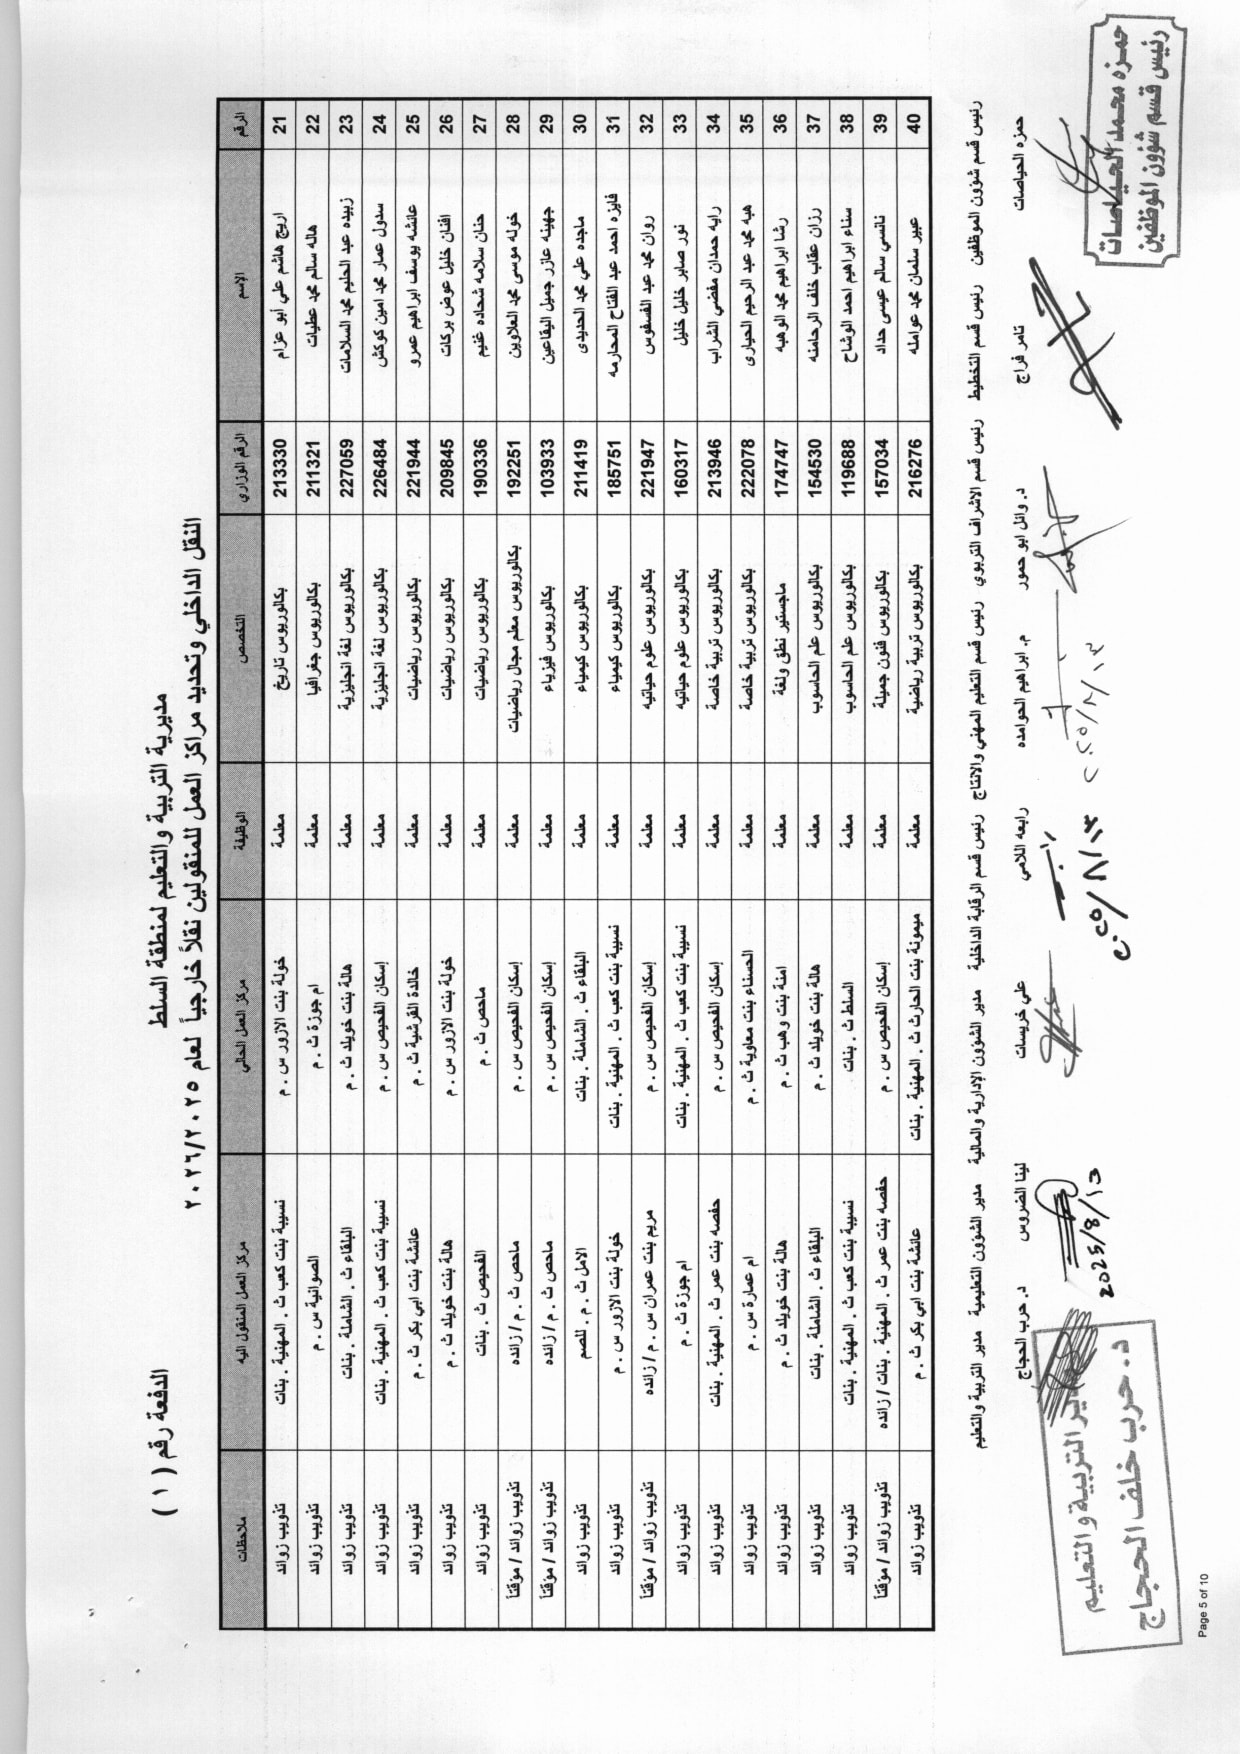 مديرية التربية والتعليم لمنطقة السلط
النقل الداخلي وتحديد مراكز العمل للمنقولين نقلاً خارجياً لعام ٢٠٢٦/٢٠٢٥
الدفعة رقم ( ١ )
الرقم الإسم الرقم الوزاري التخصص الوظيفة مركز العمل الحالي مركز العمل المنقول اليه ملاحظات
21 اريج هاشم علي أبو عزام 213330 بكالوريوس تاريخ معلمة خولة بنت الازور س . م نسيبة بنت كعب ث . المهنية . بنات تذويب زوائد
22 هاله سالم محمد عطيات 211321 بكالوريوس جغرافيا معلمة ام جوزة ث . م الصوانية س . م تذويب زوائد
23 زبيده عبد الحليم محمد السلامات 227059 بكالوريوس لغة انجليزية معلمة هالة بنت خويلد ث . م البلقاء ث . الشاملة . بنات تذويب زوائد
24 سدول عمار محمد امين كوكش 226484 بكالوريوس لغة انجليزية معلمة إسكان الفحيص س . م نسيبة بنت كعب ث . المهنية . بنات تذويب زوائد
25 عائشه يوسف ابراهيم عمرو 221944 بكالوريوس رياضيات معلمة خالدة القرشية ث . م عائشة بنت ابي بكر ث . م تذويب زوائد
26 افنان خليل عوض بركات 209845 بكالوريوس رياضيات معلمة خولة بنت الازور س . م هالة بنت خويلد ث . م تذويب زوائد
27 حنان سلامه شحاده غنيم 190336 بكالوريوس رياضيات معلمة ماحص ث . م الفحيص ث . بنات تذويب زوائد
28 خوله موسى محمد العلاوين 192251 بكالوريوس معلم مجال رياضيات معلمة إسكان الفحيص س . م ماحص ث . م / زائده تذويب زوائد / مؤقتاً
29 جهينه عازر جميل البقاعين 103933 بكالوريوس فيزياء معلمة إسكان الفحيص س . م ماحص ث . م / زائده تذويب زوائد / مؤقتاً
30 ماجده علي محمد الحديدي 211419 بكالوريوس كيمياء معلمة البلقاء ث . الشاملة . بنات الامل ث . م . للصم تذويب زوائد
31 فايزه احمد عبد الفتاح المحارمه 185751 بكالوريوس كيمياء معلمة نسيبة بنت كعب ث . المهنية . بنات خولة بنت الازور س . م تذويب زوائد
32 روان محمد عبد الفسفوس 221947 بكالوريوس علوم حياتيه معلمة إسكان الفحيص س . م مريم بنت عمران س . م / زائده تذويب زوائد / مؤقتاً
33 نور صابر خليل خليل 160317 بكالوريوس علوم حياتيه معلمة نسيبة بنت كعب ث . المهنية . بنات ام جوزة ث . م تذويب زوائد
34 رايه حمدان مفضي الشراب 213946 بكالوريوس تربية خاصة معلمة إسكان الفحيص س . م حفصه بنت عمر ث . المهنية . بنات تذويب زوائد
35 هبه محمد عبد الرحيم الحياري 222078 بكالوريوس تربية خاصة معلمة الحسناء بنت معاوية ث . م ام عمارة س . م تذويب زوائد
36 رشا ابراهيم محمد الوهبه 174747 ماجستير نطق ولغة معلمة امنة بنت وهب ث . م هالة بنت خويلد ث . م تذويب زوائد
37 رزان عقاب خلف الرحامنه 154530 بكالوريوس علم الحاسوب معلمة هالة بنت خويلد ث . م البلقاء ث . الشاملة . بنات تذويب زوائد
38 سناء ابراهيم احمد الوشاح 119688 بكالوريوس علم الحاسوب معلمة السلط ث . بنات نسيبة بنت كعب ث . المهنية . بنات تذويب زوائد
39 نانسي سالم عيسى حداد 157034 بكالوريوس فنون جميلة معلمة إسكان الفحيص س . م حفصه بنت عمر ث . المهنية . بنات / زائده تذويب زوائد / مؤقتاً
40 عبير سلمان محمد عوامله 216276 بكالوريوس تربية رياضية معلمة ميمونة بنت الحارث ث . المهنية . بنات عائشة بنت ابي بكر ث . م تذويب زوائد
رئيس قسم شؤون الموظفين رئيس قسم التخطيط رئيس قسم الاشراف التربوي رئيس قسم التعليم المهني والانتاج رئيس قسم الرقابة الداخلية مدير الشؤون الإدارية والمالية مدير الشؤون التعليمية مدير التربية والتعليم
حمزه الحياصات تامر فراج د. وائل ابو حمور م. ابراهيم الحوامده رابعه اللامي علي خريسات لينا الضروس د. حرب الحجاج
حمزه محمد الحياصات
رئيس قسم شؤون الموظفين
٢٠٢٥/٨/١٣
٢٠٢٥/٨/١٣
2025/8/13
مدير التربية والتعليم
د. حرب خلف الحجاج
Page 5 of 10